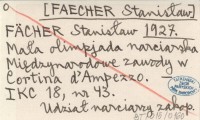 [FAECHER Stanisław]
FÄCHER Stanisław 1927.
Mała olimpjada narciarska
Międzynarodowe zawody w
Cortina d'Ampezzo.
IKC 18, nr 43.
Udział narciarzy zakop.